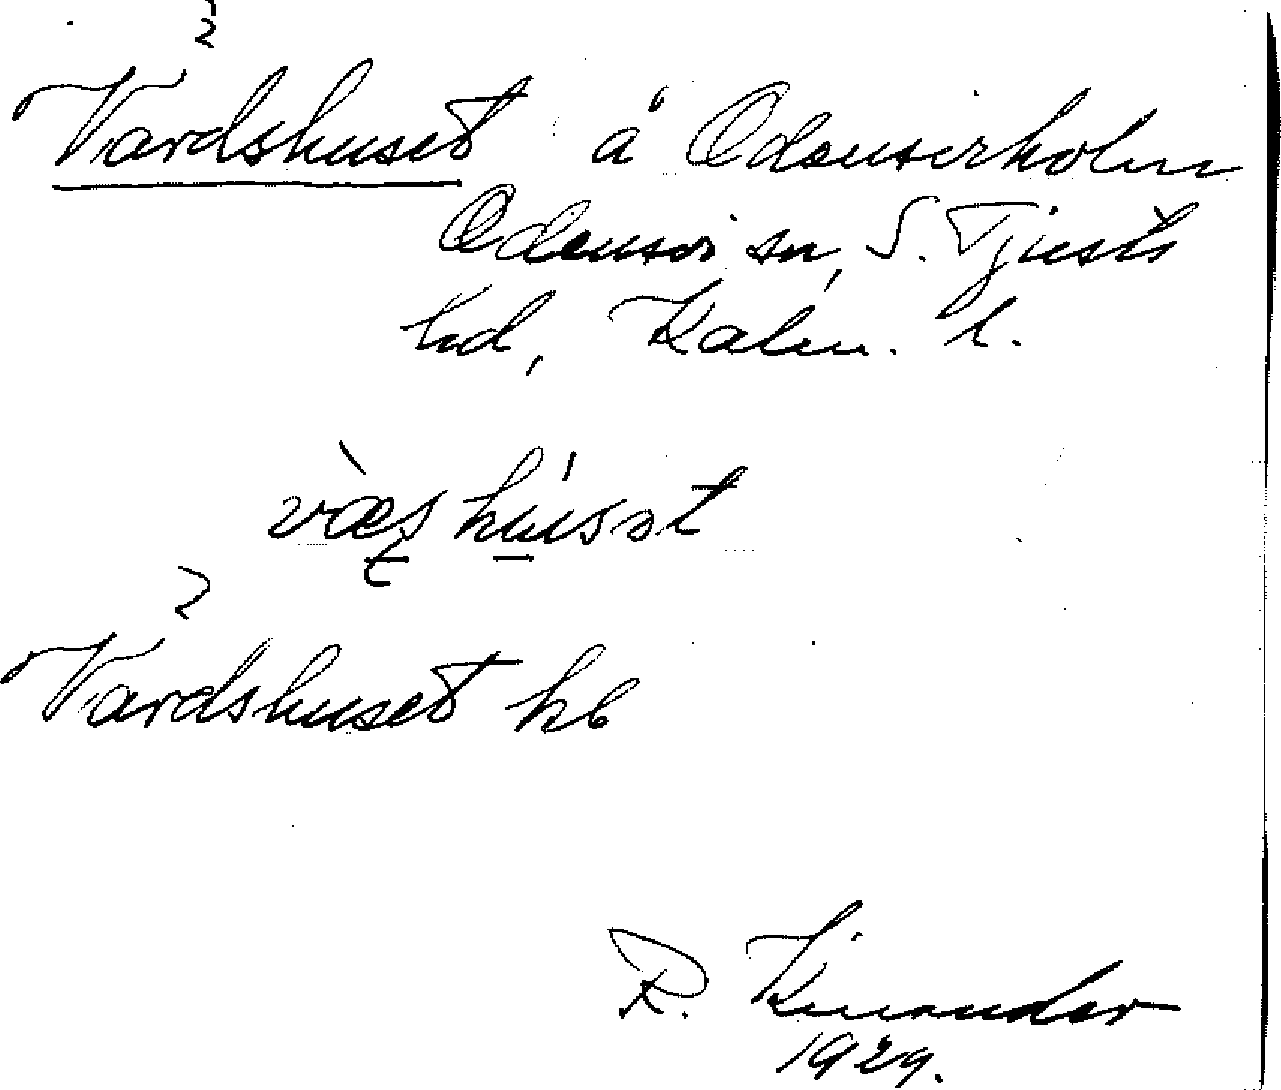 2
Vardshuset å Odenserholm
Odensvi sn, S. Tjusts
hd, Kalm. l.
væs husət
2
Vardshuset kb
R. Kinander
1929.